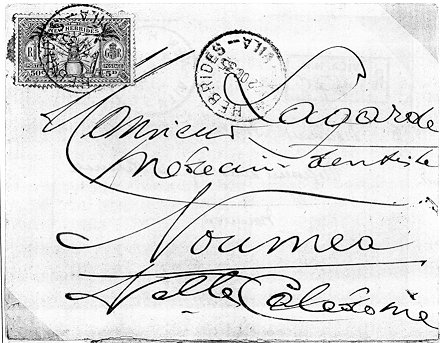 NEW HEBRIDES
50c 5d
HEBRIDES - VILA
Monsieur Lagarde
Médecin-dentiste
Noumea
Nlle Calédonie